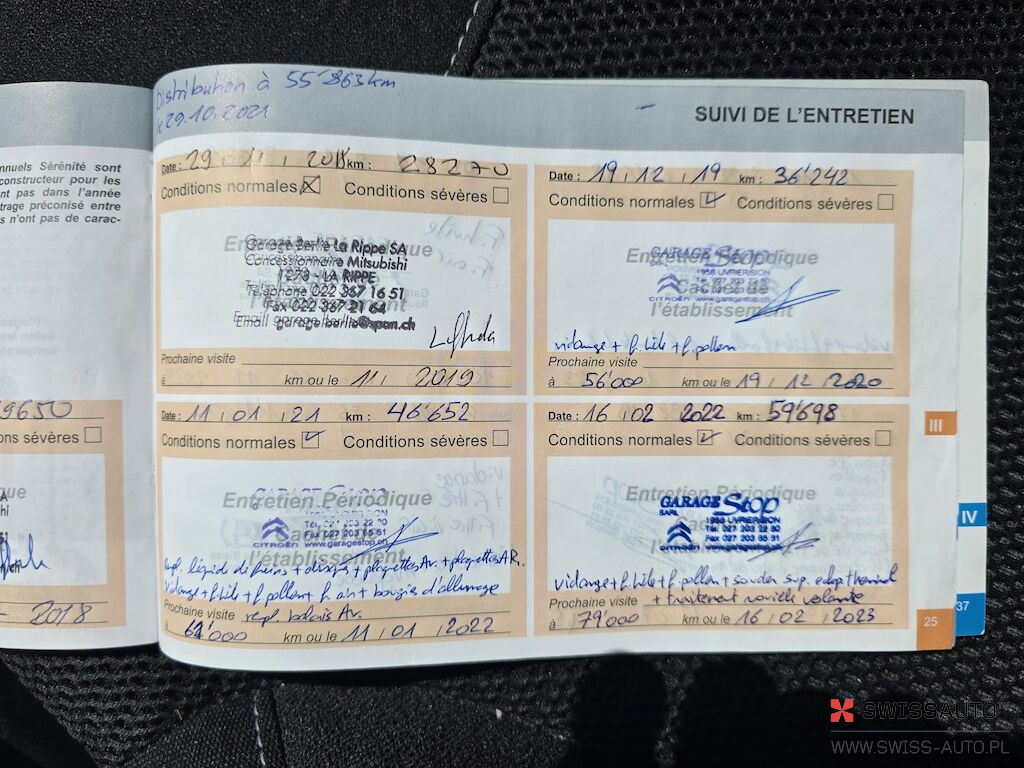 nnuels Sérénité sont
constructeur pour les
nt pas dans l'année
trage préconisé entre
s n'ont pas de carac-
9650
ons sévères
- 2018
Distribution à 55'863km
le 29.10.2021
SUIVI DE L'ENTRETIEN
Date : 29 11 2018 km : 28270
Conditions normales Conditions sévères
Entretien
Garage Berlie La Rippe SA
Concessionnaire Mitsubishi
1278 - LA RIPPE
Téléphone 022 367 16 51
Fax 022 367 21 64
Email garage.berlie@span.ch
Prochaine visite
à km ou le 11 2019
Date : 19 12 19 km : 36'242
Conditions normales Conditions sévères
Entretien Périodique
Cachet de
l'établissement
GARAGE Stop
SARL 1958 UVRIER/SION
Tél. 027 203 22 80
Fax 027 203 65 51
CITROËN www.garagestop.ch
vidange + f. hile + f. pollen
Prochaine visite
à 56'000 km ou le 19 12 2020
Date : 11 01 21 km : 46'652
Conditions normales Conditions sévères
Entretien Périodique
l'établissement
GARAGE Stop
UVRIER/SION
Tél. 027 203 22 80
Fax 027 203 65 51
CITROËN www.garagestop.ch
rempl. liquide de freins + disques + plaquettes Av. + plaquettes AR.
vidange + f. hile + f. pollen + f. air + bougies d'allumage
Prochaine visite repl. balais Av.
à 000 km ou le 11 01 2022
Date : 16 02 2022 km : 59'698
Conditions normales Conditions sévères
Entretien Périodique
GARAGE Stop
SARL 1958 UVRIER/SION
Tél. 027 203 22 80
Fax 027 203 65 51
CITROËN www.garagestop.ch
vidange + f. hile + f. pollen +
Prochaine visite + traitement
à 79'000 km ou le 16 02 2023
III
IV
37
25
SWISSAUTO
WWW.SWISS-AUTO.PL